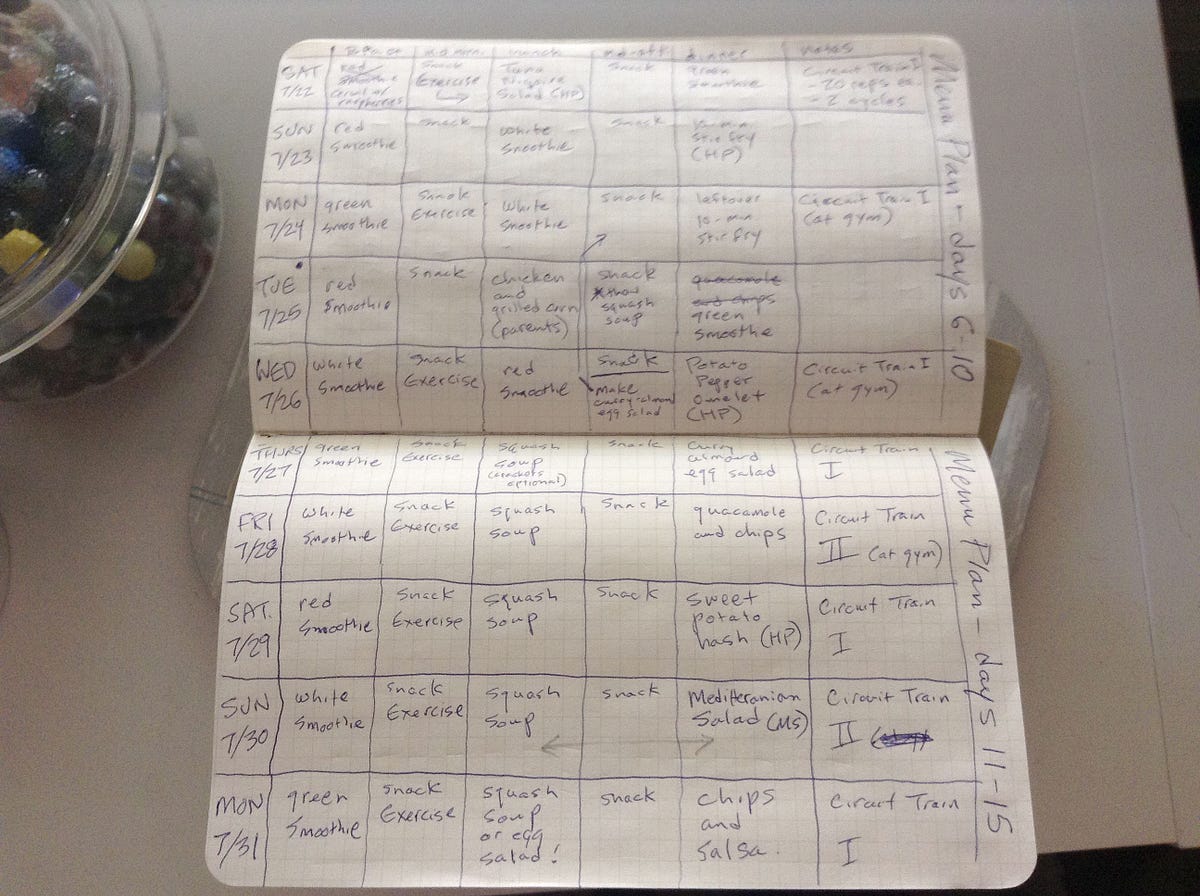 Menu Plan - days 6-10
Bkfast mid morn. lunch mid-aft dinner notes
SAT
7/22
red
Smoothie
raspberries
Snack
Exercise
Tuna
Niçoise
Salad (HP)
snack
green
smoothie
Circuit Train I
- 20 reps ea.
- 2 cycles
SUN
7/23
red
Smoothie
snack
white
Smoothie
snack
10-min
stir fry
(HP)
MON
7/24
green
Smoothie
Snack
Exercise
white
Smoothie
snack
leftover
10-min
stir fry
Circuit Train I
(at gym)
TUE
7/25
red
Smoothie
Snack
chicken
and
grilled corn
(parents)
snack
squash
soup
guacamole
and chips
green
Smoothe
WED
7/26
white
Smoothie
Snack
Exercise
red
Smoothie
snack
make
curry-almond
egg salad
Potato
Pepper
omelet
(HP)
Circuit Train I
(at gym)
Menu Plan - days 11-15
THURS
7/27
green
Smoothie
Snack
Exercise
Squash
Soup
(crackers
optional)
snack
Curry
almond
egg salad
Circuit Train
I
FRI
7/28
white
Smoothie
Snack
Exercise
Squash
Soup
Snack
guacamole
and chips
Circuit Train
II (at gym)
SAT.
7/29
red
Smoothie
Snack
Exercise
Squash
Soup
Snack
Sweet
potato
hash (HP)
Circuit Train
I
SUN
7/30
white
Smoothie
Snack
Exercise
Squash
Soup
snack
Mediteranian
Salad (MS)
Circuit Train
II
MON
7/31
green
Smoothie
Snack
Exercise
Squash
Soup
or egg
Salad!
snack
chips
and
Salsa.
Circuit Train
I